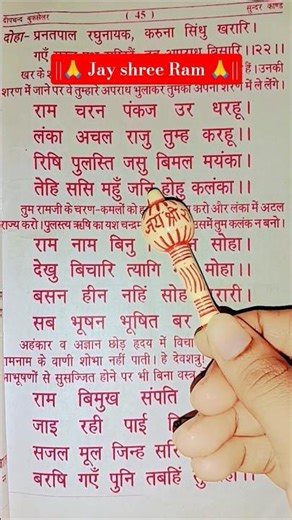 दीपचन्द बुकसेलर ( 45 ) सुन्दर काण्ड
|| 🙏 Jay shree Ram 🙏 ||
दोहा- प्रनतपाल रघुनायक, करुना सिंधु खरारि।
गएँ
।।२२।।
खर के
हैं। उनकी
शरण में जाने पर वे तुम्हारे अपराध भुलाकर तुमको अपनी शरण में ले लेंगे।
राम चरन पंकज उर धरहू।
लंका अचल राजु तुम्ह करहू।।
रिषि पुलस्ति जसु बिमल मयंका।
तेहि ससि महुँ जनि होहु कलंका।।
तुम रामजी के चरण-कमलों को करो और लंका में अटल
राज्य करो। पुलस्त्य ऋषि का यश चन्द्रमा समें तुम कलंक न बनो।
राम नाम बिनु सोहा।
देखु बिचारि त्यागि मोहा।।
बसन हीन नहिं सोह
सब भूषन भूषित बर
अहंकार व अज्ञान छोड़ हृदय में विचा
रामनाम के वाणी शोभा नहीं पाती। हे देवशत्रु!
भाभूषणों से सुसज्जित होने पर भी बिना वस्त्र
राम बिमुख संपति
जाइ रही पाई
सजल मूल जिन्ह सरि
बरषि गएँ पुनि तबहिं
जय श्री